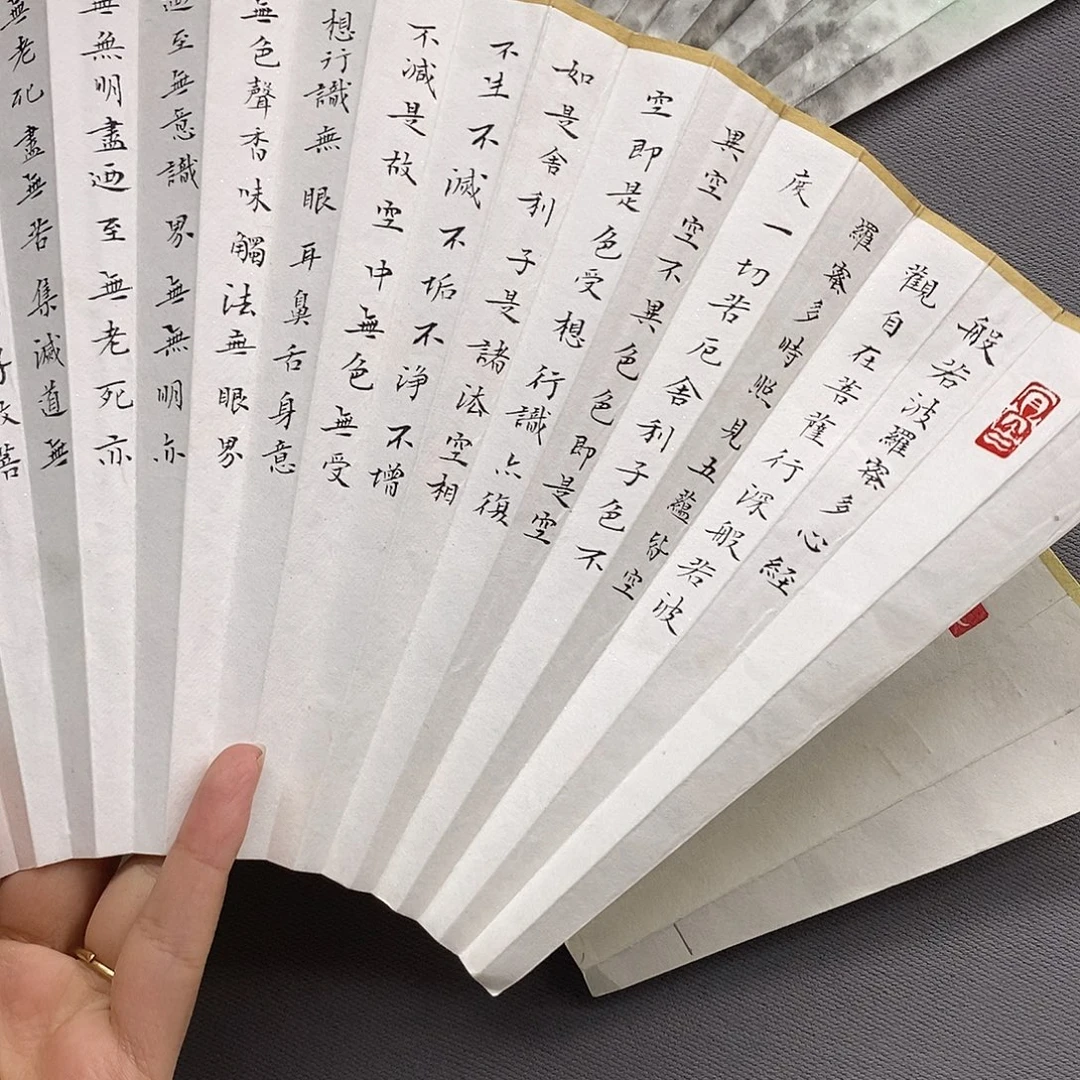 般若波羅蜜多心経
觀自在菩薩行深般若波
羅蜜多時照見五蘊皆空
度一切苦厄舍利子色不
異空空不異色色即是空
空即是色受想行識亦復
如是舍利子是諸法空相
不生不滅不垢不浄不增
不減是故空中無色無受
想行識無眼耳鼻舌身意
無色聲香味觸法無眼界
廼至無意識界無無明亦
無無明盡廼至無老死亦
無老死盡無苦集滅道無
菩